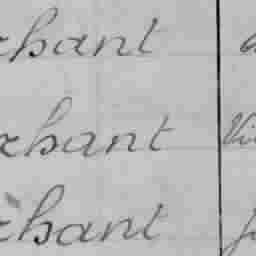 chant
chant Vi
chant